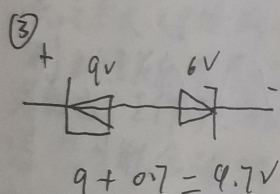 ③
+ 9V 6V -
9 + 0.7 = 9.7V